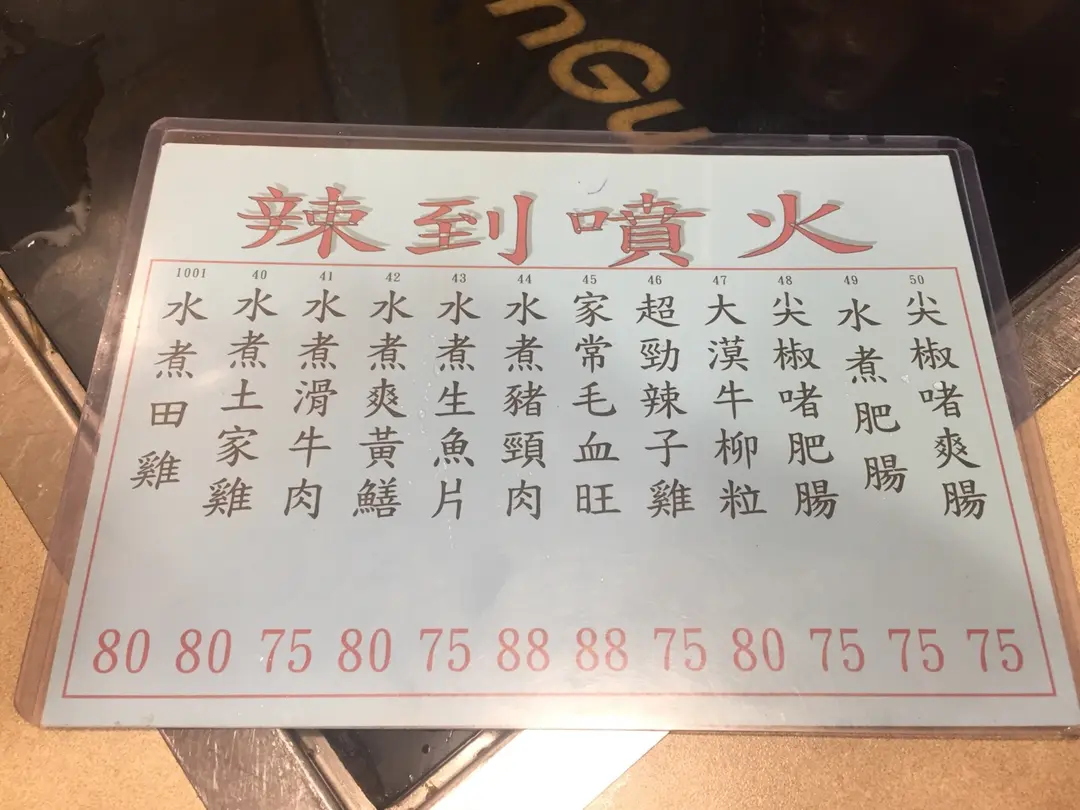 nGu
辣到噴火
1001 水煮田雞 80
40 水煮土家雞 80
41 水煮滑牛肉 75
42 水煮爽黃鱔 80
43 水煮生魚片 75
44 水煮豬頸肉 88
45 家常毛血旺 88
46 超勁辣子雞 75
47 大漠牛柳粒 80
48 尖椒啫肥腸 75
49 水煮肥腸 75
50 尖椒啫爽腸 75